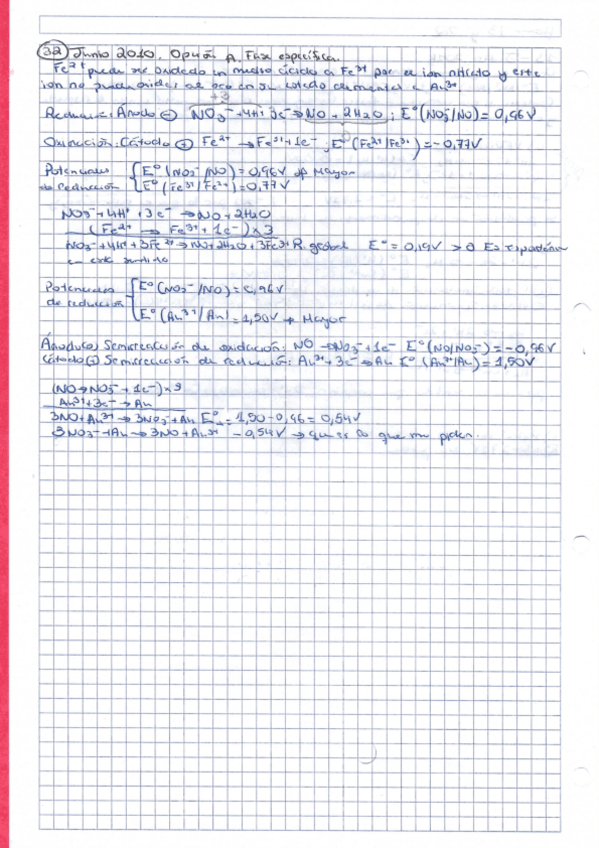 32 Junio 2010. Opción A. Fase específica.
Fe²⁺ puede ser oxidado en medio ácido a Fe³⁺ por el ion nitrato y este
ion no puede oxidar al oro en su estado elemental a Au³⁺
+3
Reducción: Ánodo ⊖ NO₃⁻ + 4H⁺ 3e⁻ → NO + 2H₂O ; E°(NO₃⁻/NO) = 0,96V
Oxidación: Cátodo ⊕ Fe²⁺ → Fe³⁺ + 1e⁻ , E°(Fe²⁺/Fe³⁺) = -0,77V
Potenciales de reducción { E°(NO₃⁻/NO) = 0,96V Mayor
E°(Fe³⁺/Fe²⁺) = 0,77V
NO₃⁻ + 4H⁺ + 3e⁻ → NO + 2H₂O
(Fe²⁺ → Fe³⁺ + 1e⁻) x 3
NO₃⁻ + 4H⁺ + 3Fe²⁺ → NO + 2H₂O + 3Fe³⁺ R. global E° = 0,19V > 0 Es espontánea
en este sentido
Potenciales de reducción { E°(NO₃⁻/NO) = 0,96V
E°(Au³⁺/Au) = 1,50V → Mayor
Ánodo(⊖) Semirreacción de oxidación: NO → NO₃⁻ + 1e⁻ E°(NO/NO₃⁻) = -0,96V
Cátodo(⊕) Semirreacción de reducción: Au³⁺ + 3e⁻ → Au E°(Au³⁺/Au) = 1,50V
(NO → NO₃⁻ + 1e⁻) x 3
Au³⁺ + 3e⁻ → Au
3NO + Au³⁺ → 3NO₃⁻ + Au E° = 1,50 - 0,96 = 0,54V
3NO₃⁻ + Au → 3NO + Au³⁺ -0,54V → que es lo que me piden.